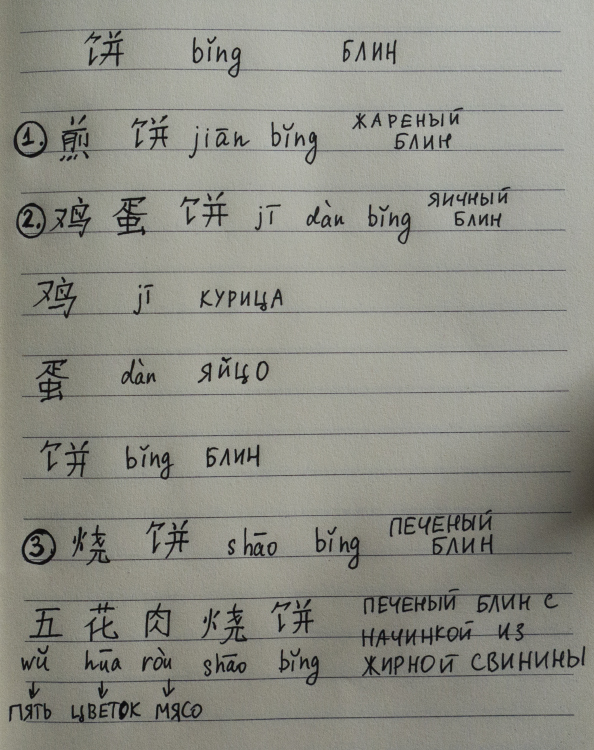 饼 bǐng БЛИН
1. 煎 饼 jiān bǐng ЖАРЕНЫЙ БЛИН
2. 鸡 蛋 饼 jī dàn bǐng ЯИЧНЫЙ БЛИН
鸡 jī КУРИЦА
蛋 dàn ЯЙЦО
饼 bǐng БЛИН
3. 烧 饼 shāo bǐng ПЕЧЕНЫЙ БЛИН
五 花 肉 烧 饼 ПЕЧЕНЫЙ БЛИН С НАЧИНКОЙ ИЗ
wǔ hūa ròu shāo bǐng ЖИРНОЙ СВИНИНЫ
ПЯТЬ ЦВЕТОК МЯСО